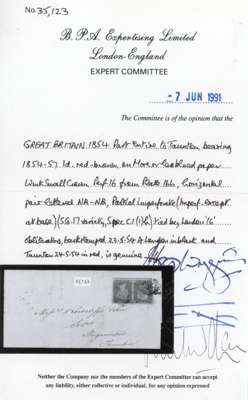 No. 35,123
B. P. A. Expertising Limited
London-England
EXPERT COMMITTEE
-7 JUN 1991
The Committee is of the opinion that the
GREAT BRITAIN 1854 Part Entire to Taunton bearing
1854-57 1d. red-brown on More or Less blued paper
Wmk Small Crown Perf.16 from Plate 166, horizontal
pair lettered NA-NB, Partial imperforate (Imperf. except
at base) (S.G.17 variety, Spec C1(1)) tied by London '16'
obliterators, backstamped 23-5-54 A London in black and
Taunton 24-5-54 in red, is genuine.
Taunton
Neither the Company nor the members of the Expert Committee can accept
any liability, either collective or individual, for any opinion expressed